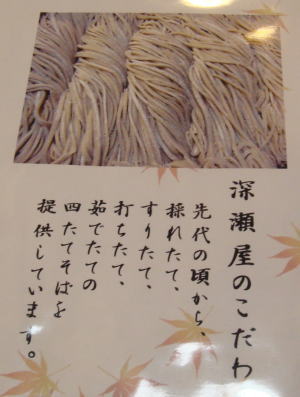 深瀬屋のこだわ
先代の頃から、
採れたて、
すりたて、
打ちたて、
茹でたての
四たてそばを
提供しています。